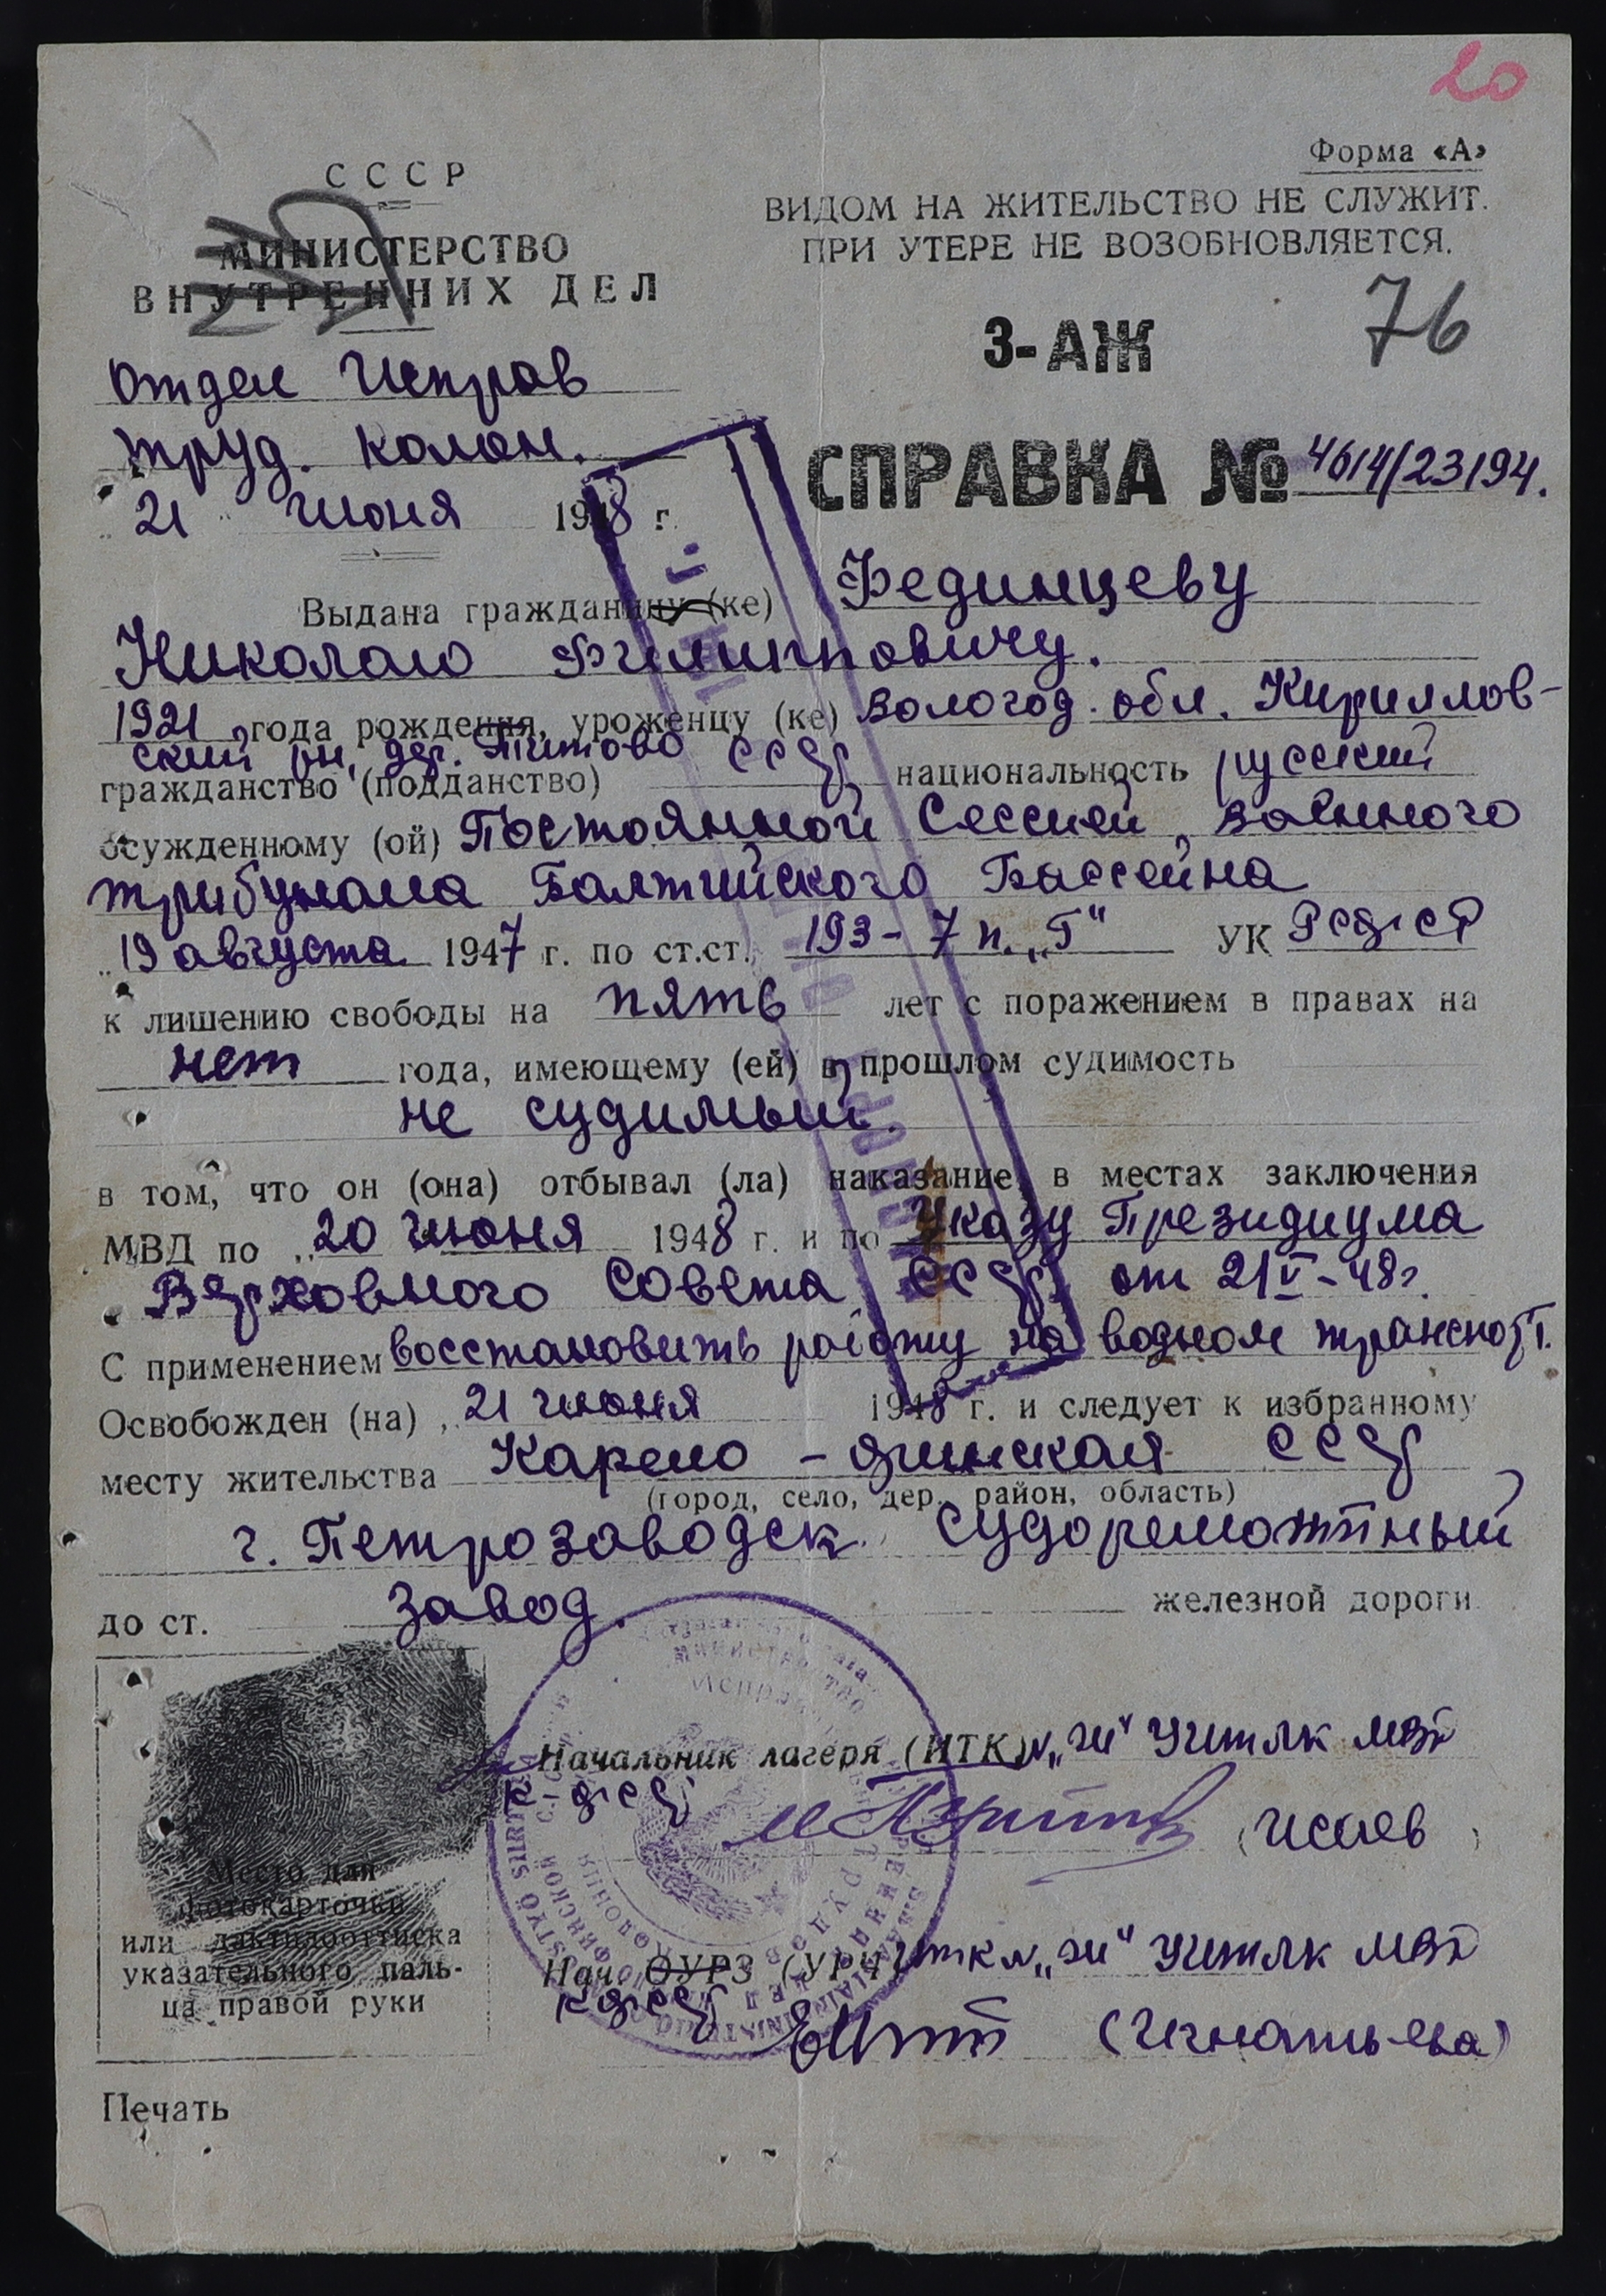 20
Форма «А»
СССР
ВИДОМ НА ЖИТЕЛЬСТВО НЕ СЛУЖИТ.
ПРИ УТЕРЕ НЕ ВОЗОБНОВЛЯЕТСЯ.
МИНИСТЕРСТВО
ВНУТРЕННИХ ДЕЛ
76
З-АЖ
Отдел Исправ
труд. колон.
СПРАВКА № 4614/23194.
"21" июня 1948 г.
Выдана гражданину (ке) Фединцеву
Николаю Филипповичу.
1921 года рождения, уроженцу (ке) Вологод. обл. Кириллов-
ский рн, дер. Титово
гражданство (подданство) СССР национальность русский
осужденному (ой) Постоянной Сессией Военного
трибунала Балтийского Бассейна
"19 августа 1947 г. по ст.ст. 193-7 п. „Г" УК РСФСР
к лишению свободы на пять лет с поражением в правах на
нет года, имеющему (ей) в прошлом судимость
не судимый.
в том, что он (она) отбывал (ла) наказание в местах заключения
МВД по „20 июня 1948 г. и по Указу Президиума
Верховного Совета СССР от 21 V-48г.
С применением восстановить работу на водном транспорт.
Освобожден (на) „21 июня 1948 г. и следует к избранному
месту жительства Карело-финская ССР
(город, село, дер. район, область)
г. Петрозаводск Судоремонтный
до ст. завод. железной дороги
Начальник лагеря (ИТК) „И" УИТЛК МВД
К-ФССР
(Исаев)
Место для
фотокарточки
или дактилооттиска
указательного паль-
ца правой руки
Нач. ОУРЗ (УРЧ ИТК „И" УИТЛК МВД
КФССР
(Игнатьева)
Печать